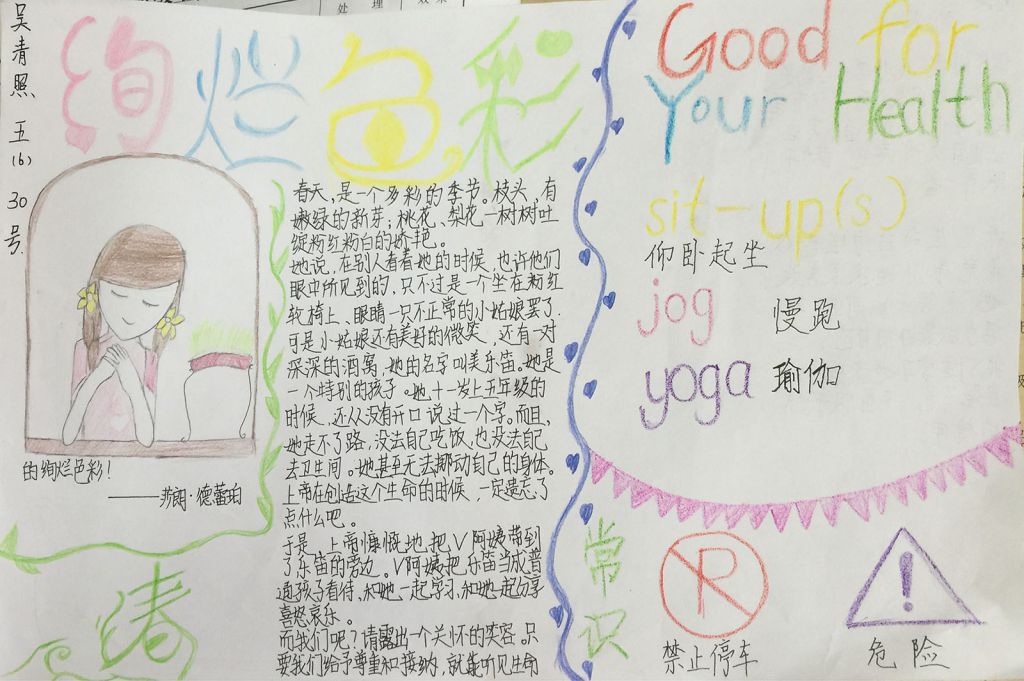 处 理
效 果
吴清照 五(6) 30号
绚烂色彩
春天,是一个多彩的季节。枝头,有
嫩绿的新芽;桃花、梨花一树树吐
绽粉红粉白的娇艳。
她说,在别人看着她的时候,也许他们
眼中所见到的,只不过是一个坐在粉红
轮椅上、眼睛一只不正常的小姑娘罢了.
可是小姑娘还有美好的微笑,还有一对
深深的酒窝,她的名字叫美乐笛。她是
一个特别的孩子。她十一岁上五年级的
时候,还从没有开口说过一个字。而且,
她走不了路,没法自己吃饭,也没法自己
去卫生间。她甚至无法挪动自己的身体。
上帝在创造这个生命的时候,一定遗忘了
点什么吧。
于是,上帝慷慨地把V阿姨带到
了乐笛的旁边。V阿姨把乐笛当成普
通孩子看待,和她一起学习,和她一起分享
喜怒哀乐。
而我们呢?请露出一个关怀的笑容。只
要我们给予尊重和接纳,就能听见生命
的绚烂色彩!
——莎朗·德蕾珀
春
Good for
Your Health
sit-up(s)
仰卧起坐
jog 慢跑
yoga 瑜伽
常识
R
禁止停车
!
危险